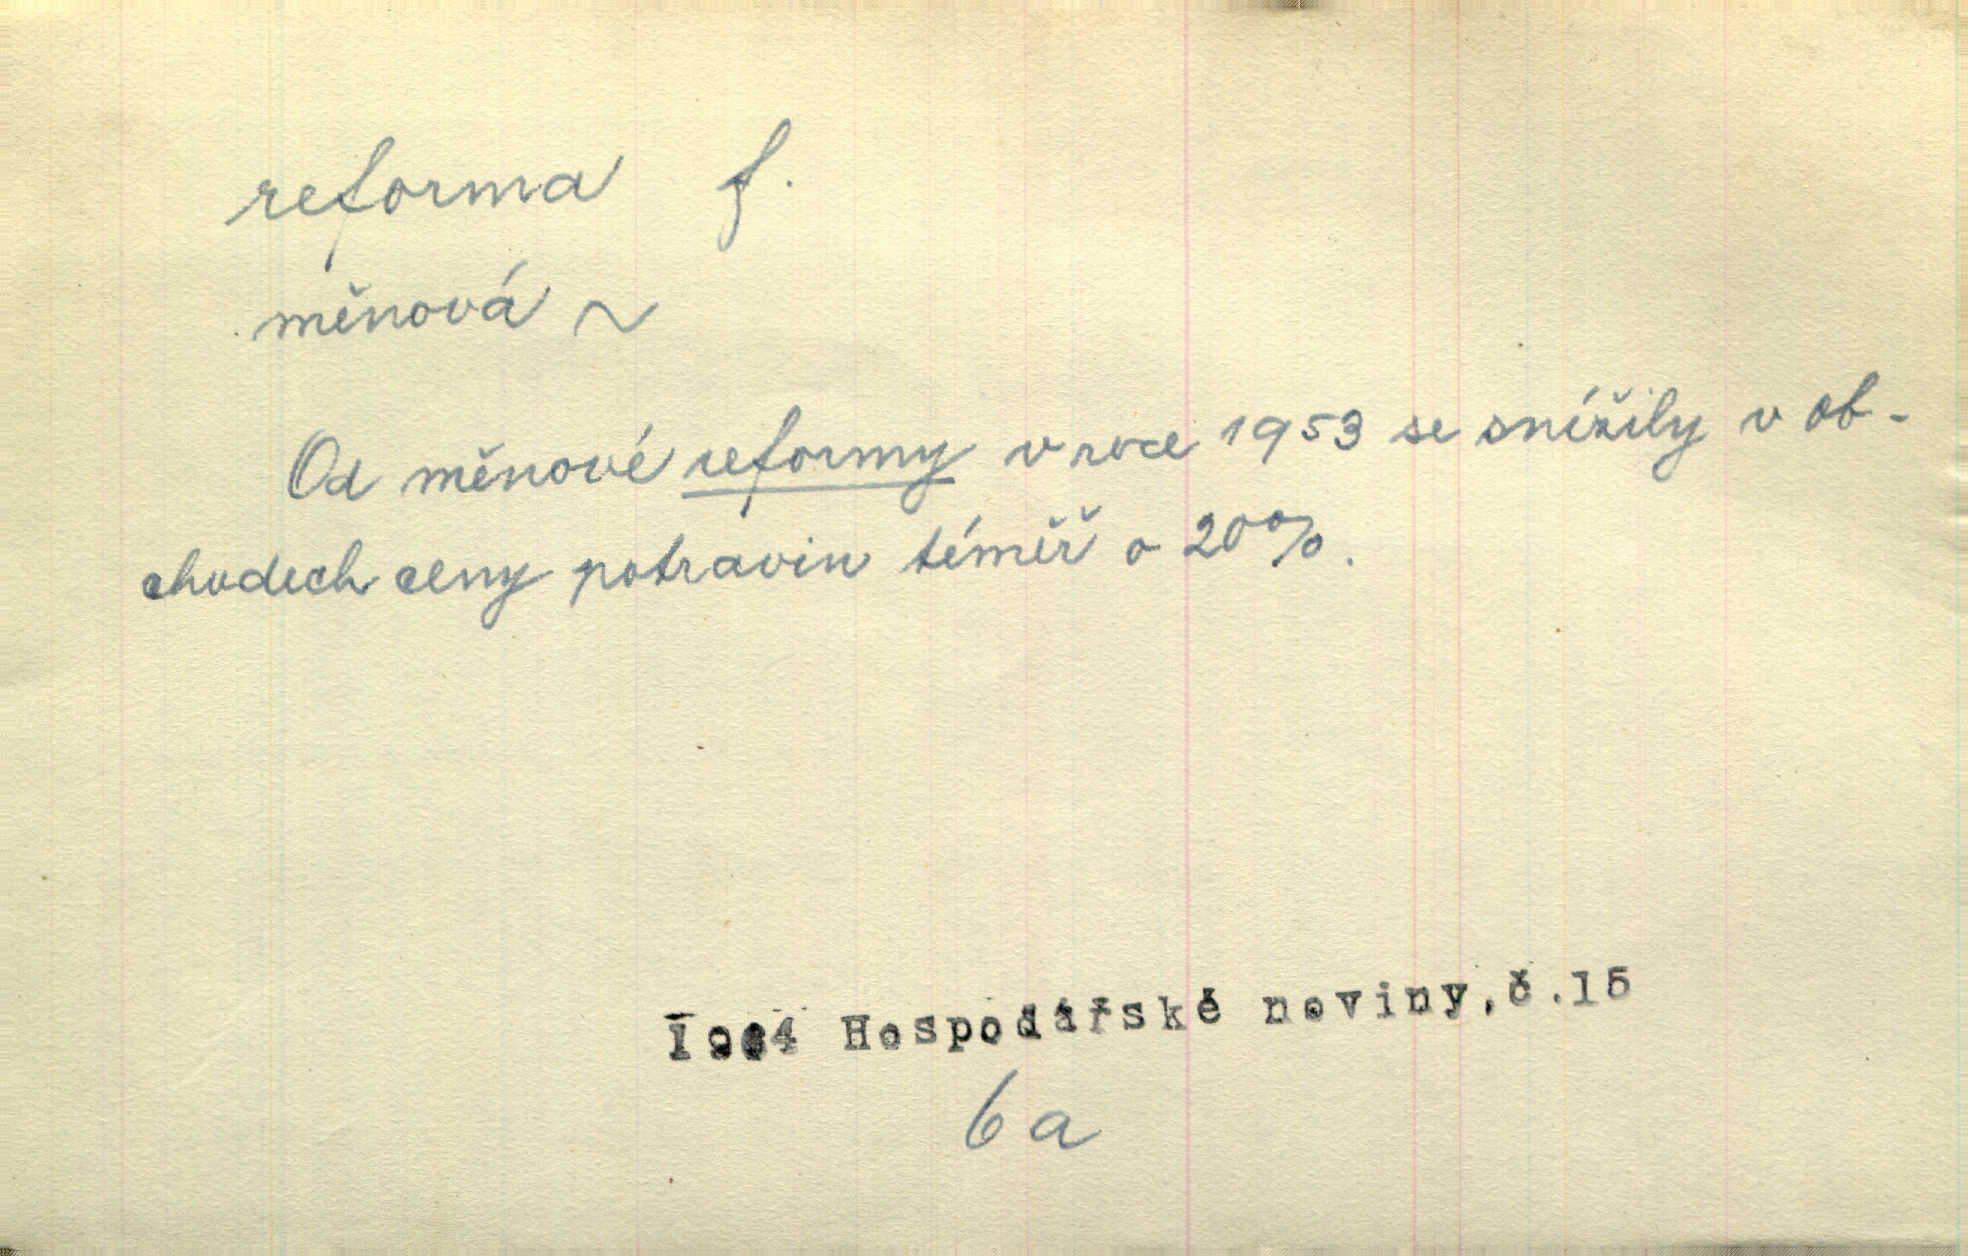 reforma f.
měnová ~
Od měnové reformy v roce 1953 se snížily v ob-
chodech ceny potravin téměř o 20%.
1964 Hospodářské noviny, č.15
6a